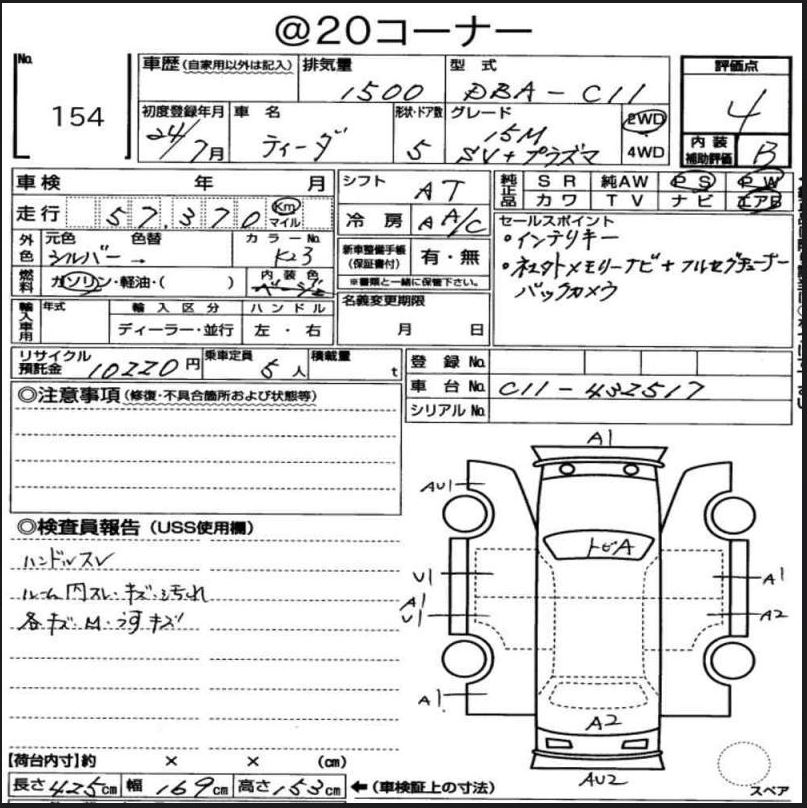 @20コーナー
No. 154
車歴(自家用以外は記入) 排気量 1500 型式 DBA-C11
評価点 4
初度登録年月 24/7月 車名 ティーダ 形状・ドア数 5 グレード 15M SV+プラズマ 2WD 4WD
内装補助評価 B
車検 年 月
シフト AT
純正品 SR 純AW PS PW
カワ TV ナビ エアB
走行 57,370 Km マイル
冷房 AA/C
セールスポイント
・インテリキー
外色 元色 シルバー 色替 → カラーNo. K23
新車整備手帳(保証書付) 有・無
※書類と一緒に保管下さい。
燃料 ガソリン・軽油・( ) 内装色 ベージュ
バックカメラ
名義変更期限
月 日
輸入車用 年式 輸入区分 ハンドル
ディーラー・並行 左・右
リサイクル預託金 10220円 乗車定員 5人 積載量 t
登録No.
車台No. C11-432517
シリアルNo.
◎注意事項(修復・不具合箇所および状態等)
◎検査員報告(USS使用欄)
ハンドルスレ
ルーム内スレ・キズ・汚れ
A1
AU1
トビA
U1
A1
A1
U1
A2
A1
A2
AU2
スペア
【荷台内寸】約 × × (cm)
長さ425cm 幅169cm 高さ153cm ←(車検証上の寸法)